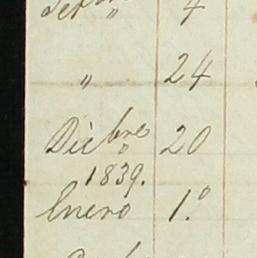 " 4
" 24
Dicbre 20
1839.
Enero 1.º